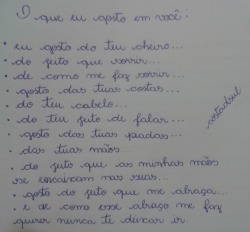 O que eu gosto em você:
• eu gosto do teu cheiro...
• do jeito que sorrir...
• de como me faz sorrir...
• gosto das tuas costas...
• do teu cabelo...
• do teu jeito de falar...
• gosto das tuas piadas...
• das tuas mãos...
• do jeito que as minhas mãos
se encaixam nas suas...
• gosto do jeito que me abraça...
• e de como esse abraço me faz
querer nunca te deixar ir.